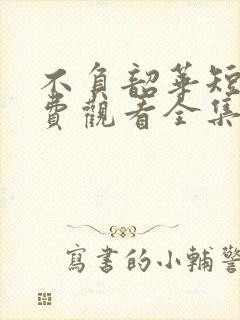 不負韶華短
費觀看全集
寫書的小輔警